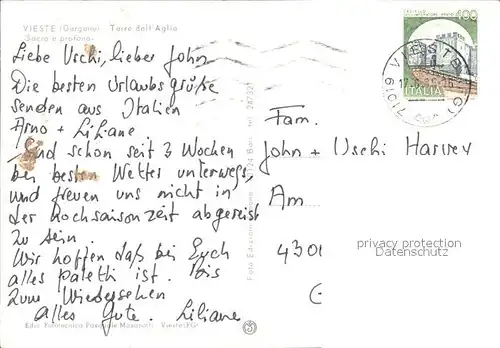 VIESTE (Gargano) Torre dell'Aglio
"Sacro e profano"
400
ITALIA
71019 VIESTE (FG)
Liebe Uschi, lieber John
Die besten Urlaubsgrüße
senden aus Italien
Arno + Liliane
Sind schon seit 3 Wochen
bei besten Wetter unterwegs,
und freuen uns nicht in
der Hochsaisonzeit abgereist
zu sein.
Wir hoffen daß bei Euch
alles paletti ist. Bis
zum Wiedersehen
Alles Gute. Liliane
Fam.
John + Uschi Harvey
Am
4300
privacy protection
Datenschutz